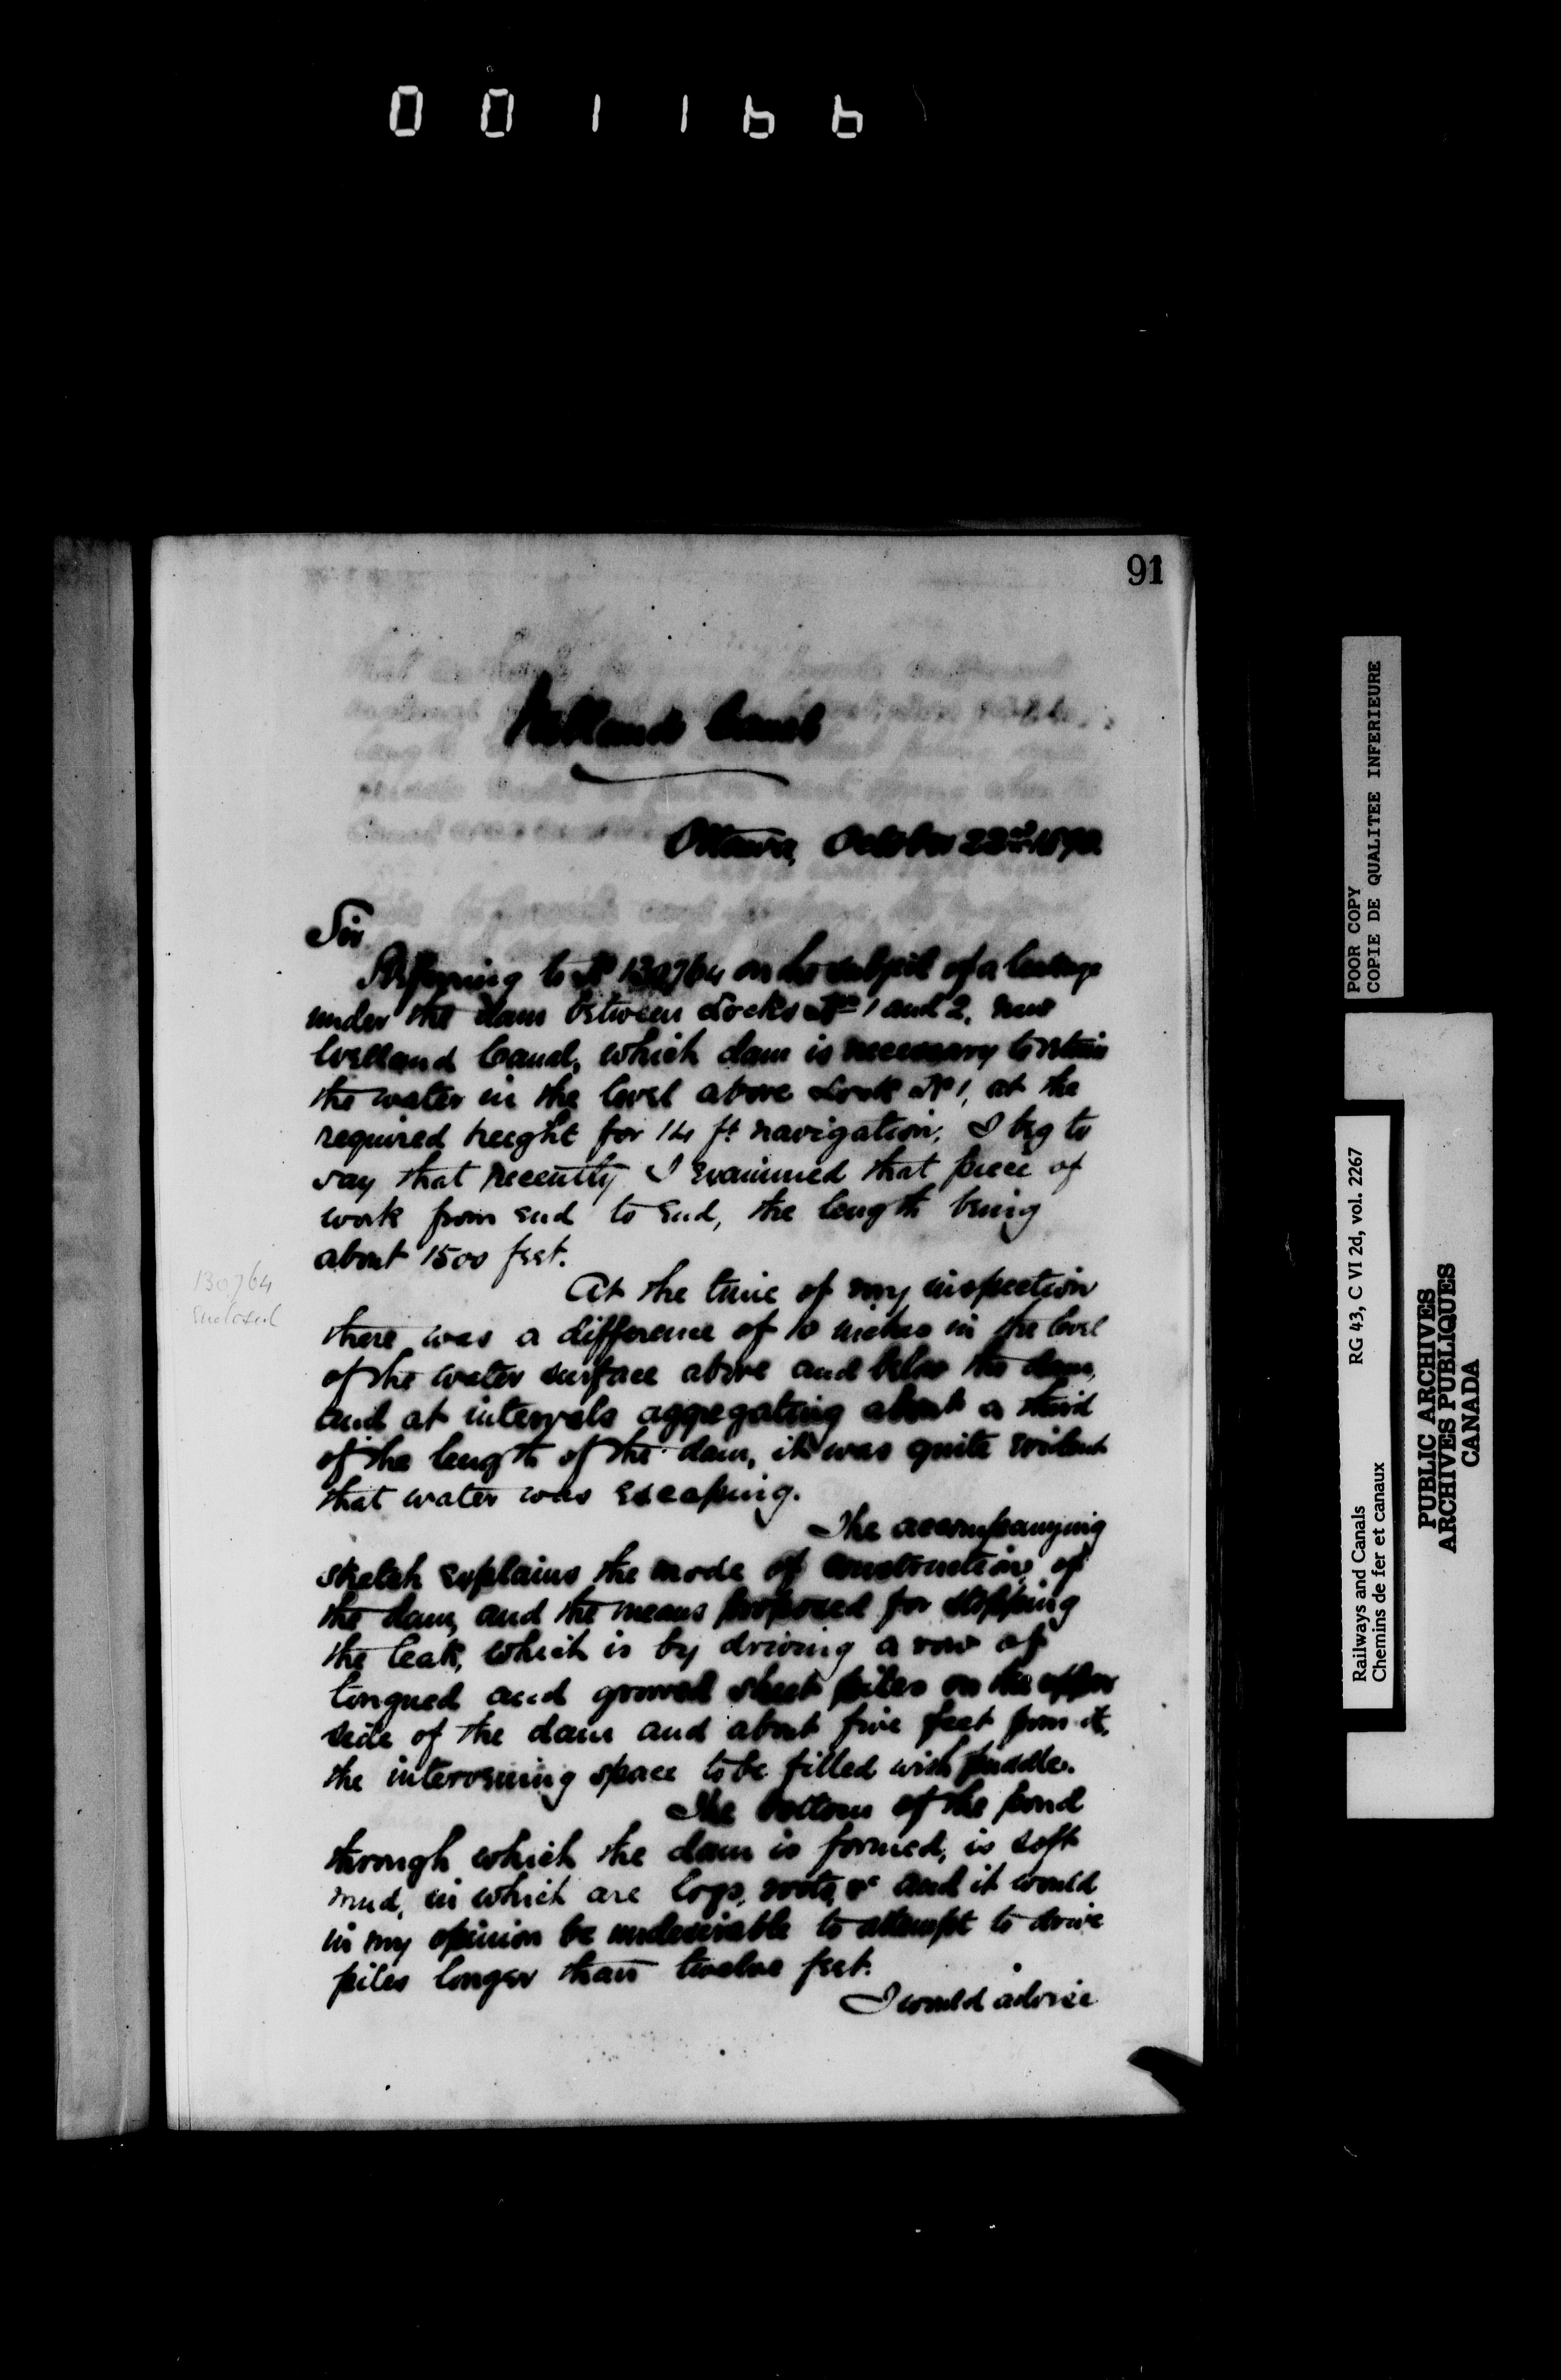 001166
91
Welland Canal
Ottawa, October 22nd 1890.
Sir
Referring to No 130764 on the subject of a leakage
under the dam between Locks Nos 1 and 2, new
Welland Canal, which dam is necessary to retain
the water in the level above Lock No 1, at the
required height for 14 ft navigation, I beg to
say that recently I examined that piece of
work from end to end, the length being
about 1500 feet.
130764
enclosed
At the time of my inspection
there was a difference of 10 inches in the level
of the water surface above and below the dam,
and at intervals aggregating about a third
of the length of the dam, it was quite evident
that water was escaping.
The accompanying
sketch explains the mode of construction of
the dam, and the means proposed for stopping
the leak, which is by driving a row of
tongued and grooved sheet piles on the upper
side of the dam and about five feet from it,
the intervening space to be filled with puddle.
The bottom of the pond
through which the dam is formed, is soft
mud, in which are logs, roots, &c and it would
in my opinion be undesirable to attempt to drive
piles longer than twelve feet.
I would advise
POOR COPY
COPIE DE QUALITEE INFERIEURE
Railways and Canals RG 43, C VI 2d, vol. 2267
Chemins de fer et canaux
PUBLIC ARCHIVES
ARCHIVES PUBLIQUES
CANADA